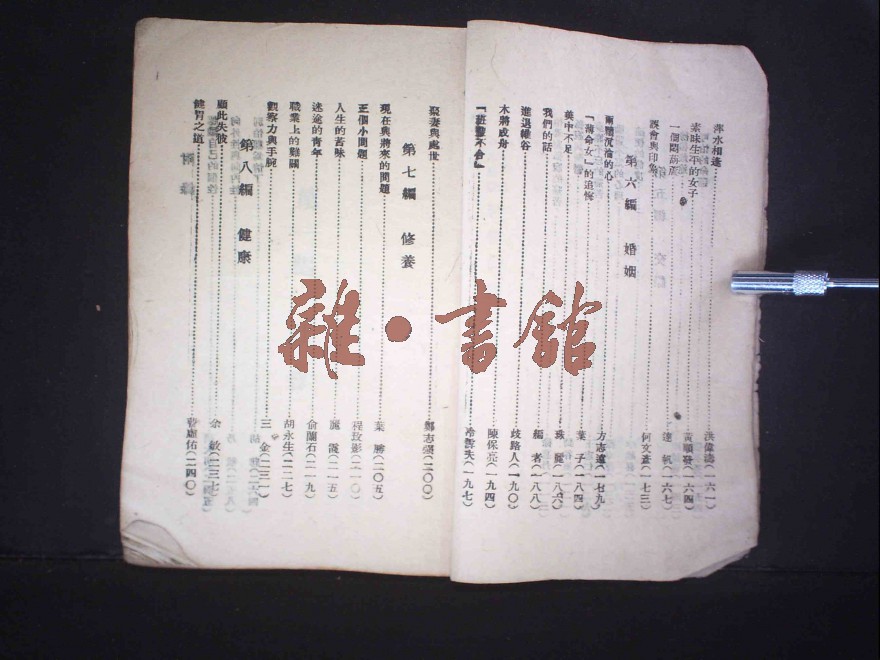 萍水相逢……洪偉濤(一六一)
素昧生平的女子……黃順發(一六四)
一個悶葫蘆……達 帆(一六七)
誤會與印象……何文蓋(一七三)
第六編 婚姻
兩顆沉淪的心……方志遠(一七九)
「薄命女」的追悔……葉 子(一八四)
美中不足……珠 履(一八六)
我們的話……編 者(一八八)
進退維谷……歧路人(一九〇)
木將成舟……陳保亮(一九四)
冷雪失(一九七)
娶妻與處世……鄭志(二〇〇)
第七編 修養
現在與將來的問題……葉 勝(二〇五)
三個小問題……程玫影(二一〇)
人生的苦味……麗 霞(二一五)
迷途的青年……俞蘭石(二一九)
職業上的難關……胡永生(二二七)
觀察力與手腕……三 金(二三一)
第八編 健康
顧此失彼……余 敏(二三七)
健胃之道……佑(二四〇)
雜·書館